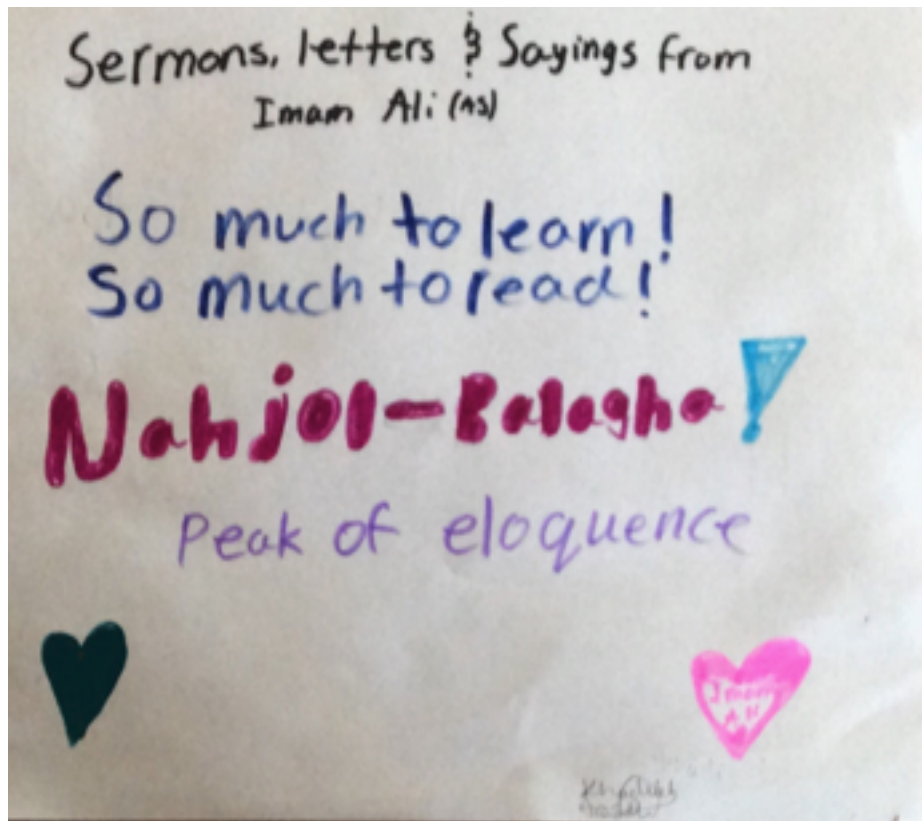 Sermons, letters & Sayings from
Imam Ali (AS)
So much to learn!
So much to read!
Nahjol-Balagha!
Peak of eloquence
Imam
Ali